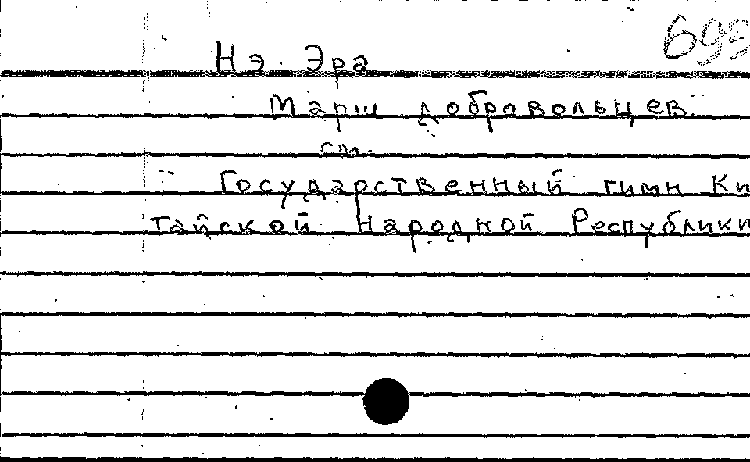 699
Нэ Эра
Марш добровольцев.
см.
Государственный гимн Ки
тайской Народной Республики